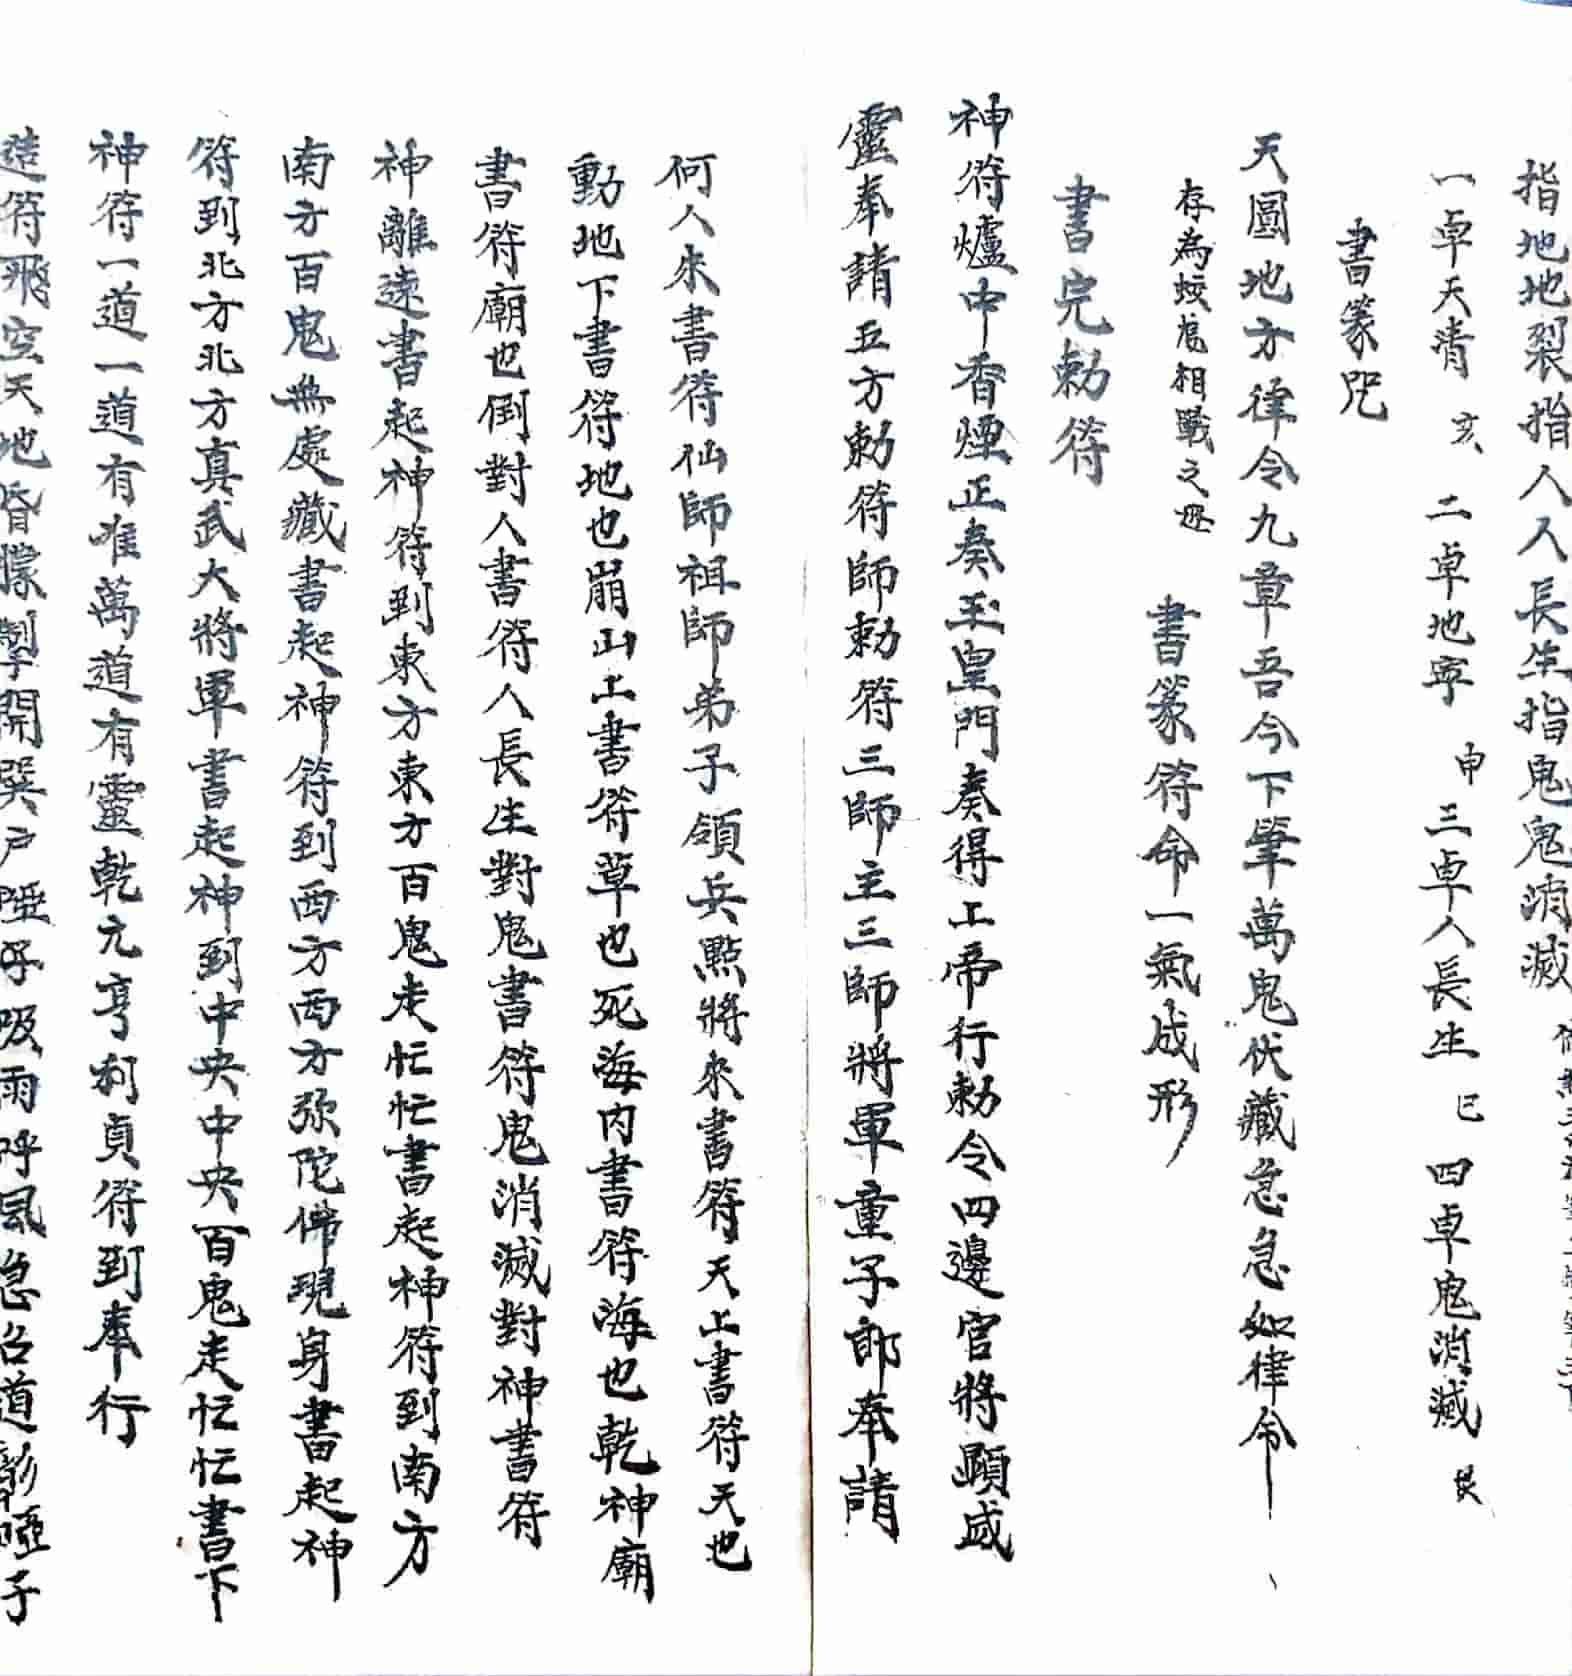 指地地裂指人人長生指鬼鬼消滅
一卓天清 亥 二卓地寕 申 三卓人長生 巳 四卓鬼消滅
書篆咒
天圓地方律令九章吾今下筆萬鬼伏藏急急如律令
存為蛟龍相戰之
書篆符命一氣成形
書完勅符
神符爐中香煙正奏玉皇門奏得上帝行勅令四邊官將顯威
靈奉請五方勅符師勅符三師主三師將軍童子郎奉請
何人來書符仙師祖師弟子領兵點將來書符天上書符天也
動地下書符地也崩山上書符草也死海内書符海也乾神廟
書符廟也倒對人書符人長生對鬼書符鬼消滅對神書符
神離遠書起神符到東方東方百鬼走忙忙書起神符到南方
南方百鬼無處藏書起神符到西方西方弥陀佛現身書起神
符到北方北方真武大將軍書起神到中央中央百鬼走忙忙書下
神符一道一道有准萬道有靈乾元亨利貞符到奉行
造符飛空天地昏朦掣開巽户 呼吸雨呼風急召道 啞子